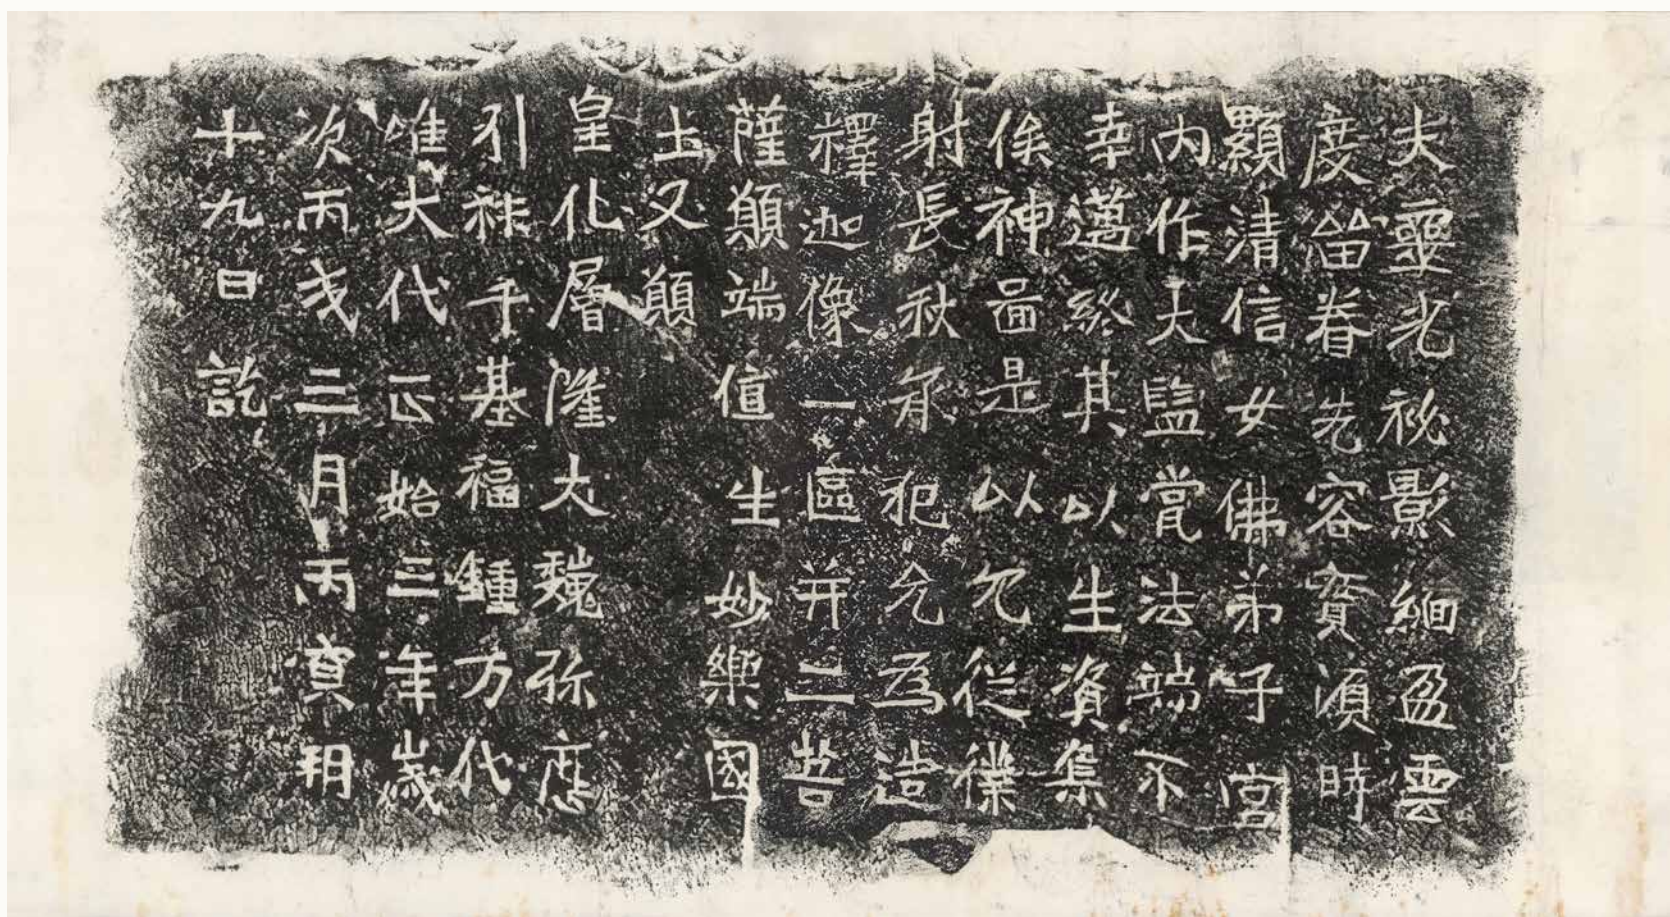 夫靈光祕影緬盈雲
度崙眷先容實須時
顯清信女佛弟子宮
内作大監瓫法端不
幸邁終其以生資集
俟神啚是以冗從僕
射長秋承祀允為造
釋迦像一區并二菩
薩願端值生妙樂國
土又願
皇化層隆大魏弥歷
引祚千基福鍾方代
唯大代正始三年歲
次丙戌三月丙寅朔
十九日訖